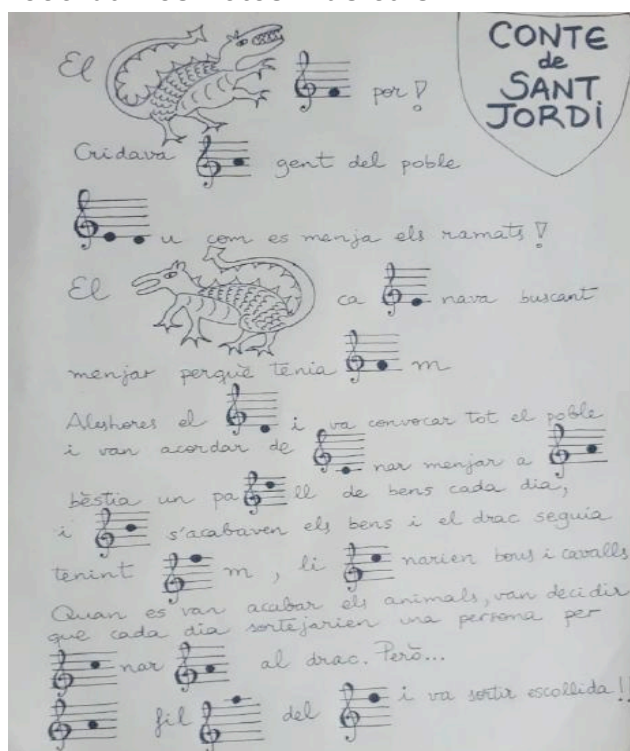 CONTE
de
SANT
JORDI
El por!
Cridava gent del poble
u com es menja els ramats!
El ca nava buscant
menjar perquè tenia m
Aleshores el i va convocar tot el poble
i van acordar de nar menjar a
bèstia un pa ll de bens cada dia,
i s'acabaven els bens i el drac seguia
tenint m, li narien bous i cavalls
Quan es van acabar els animals, van decidir
que cada dia sortejarien una persona per
nar al drac. Però...
fil del i va sortir escollida!!